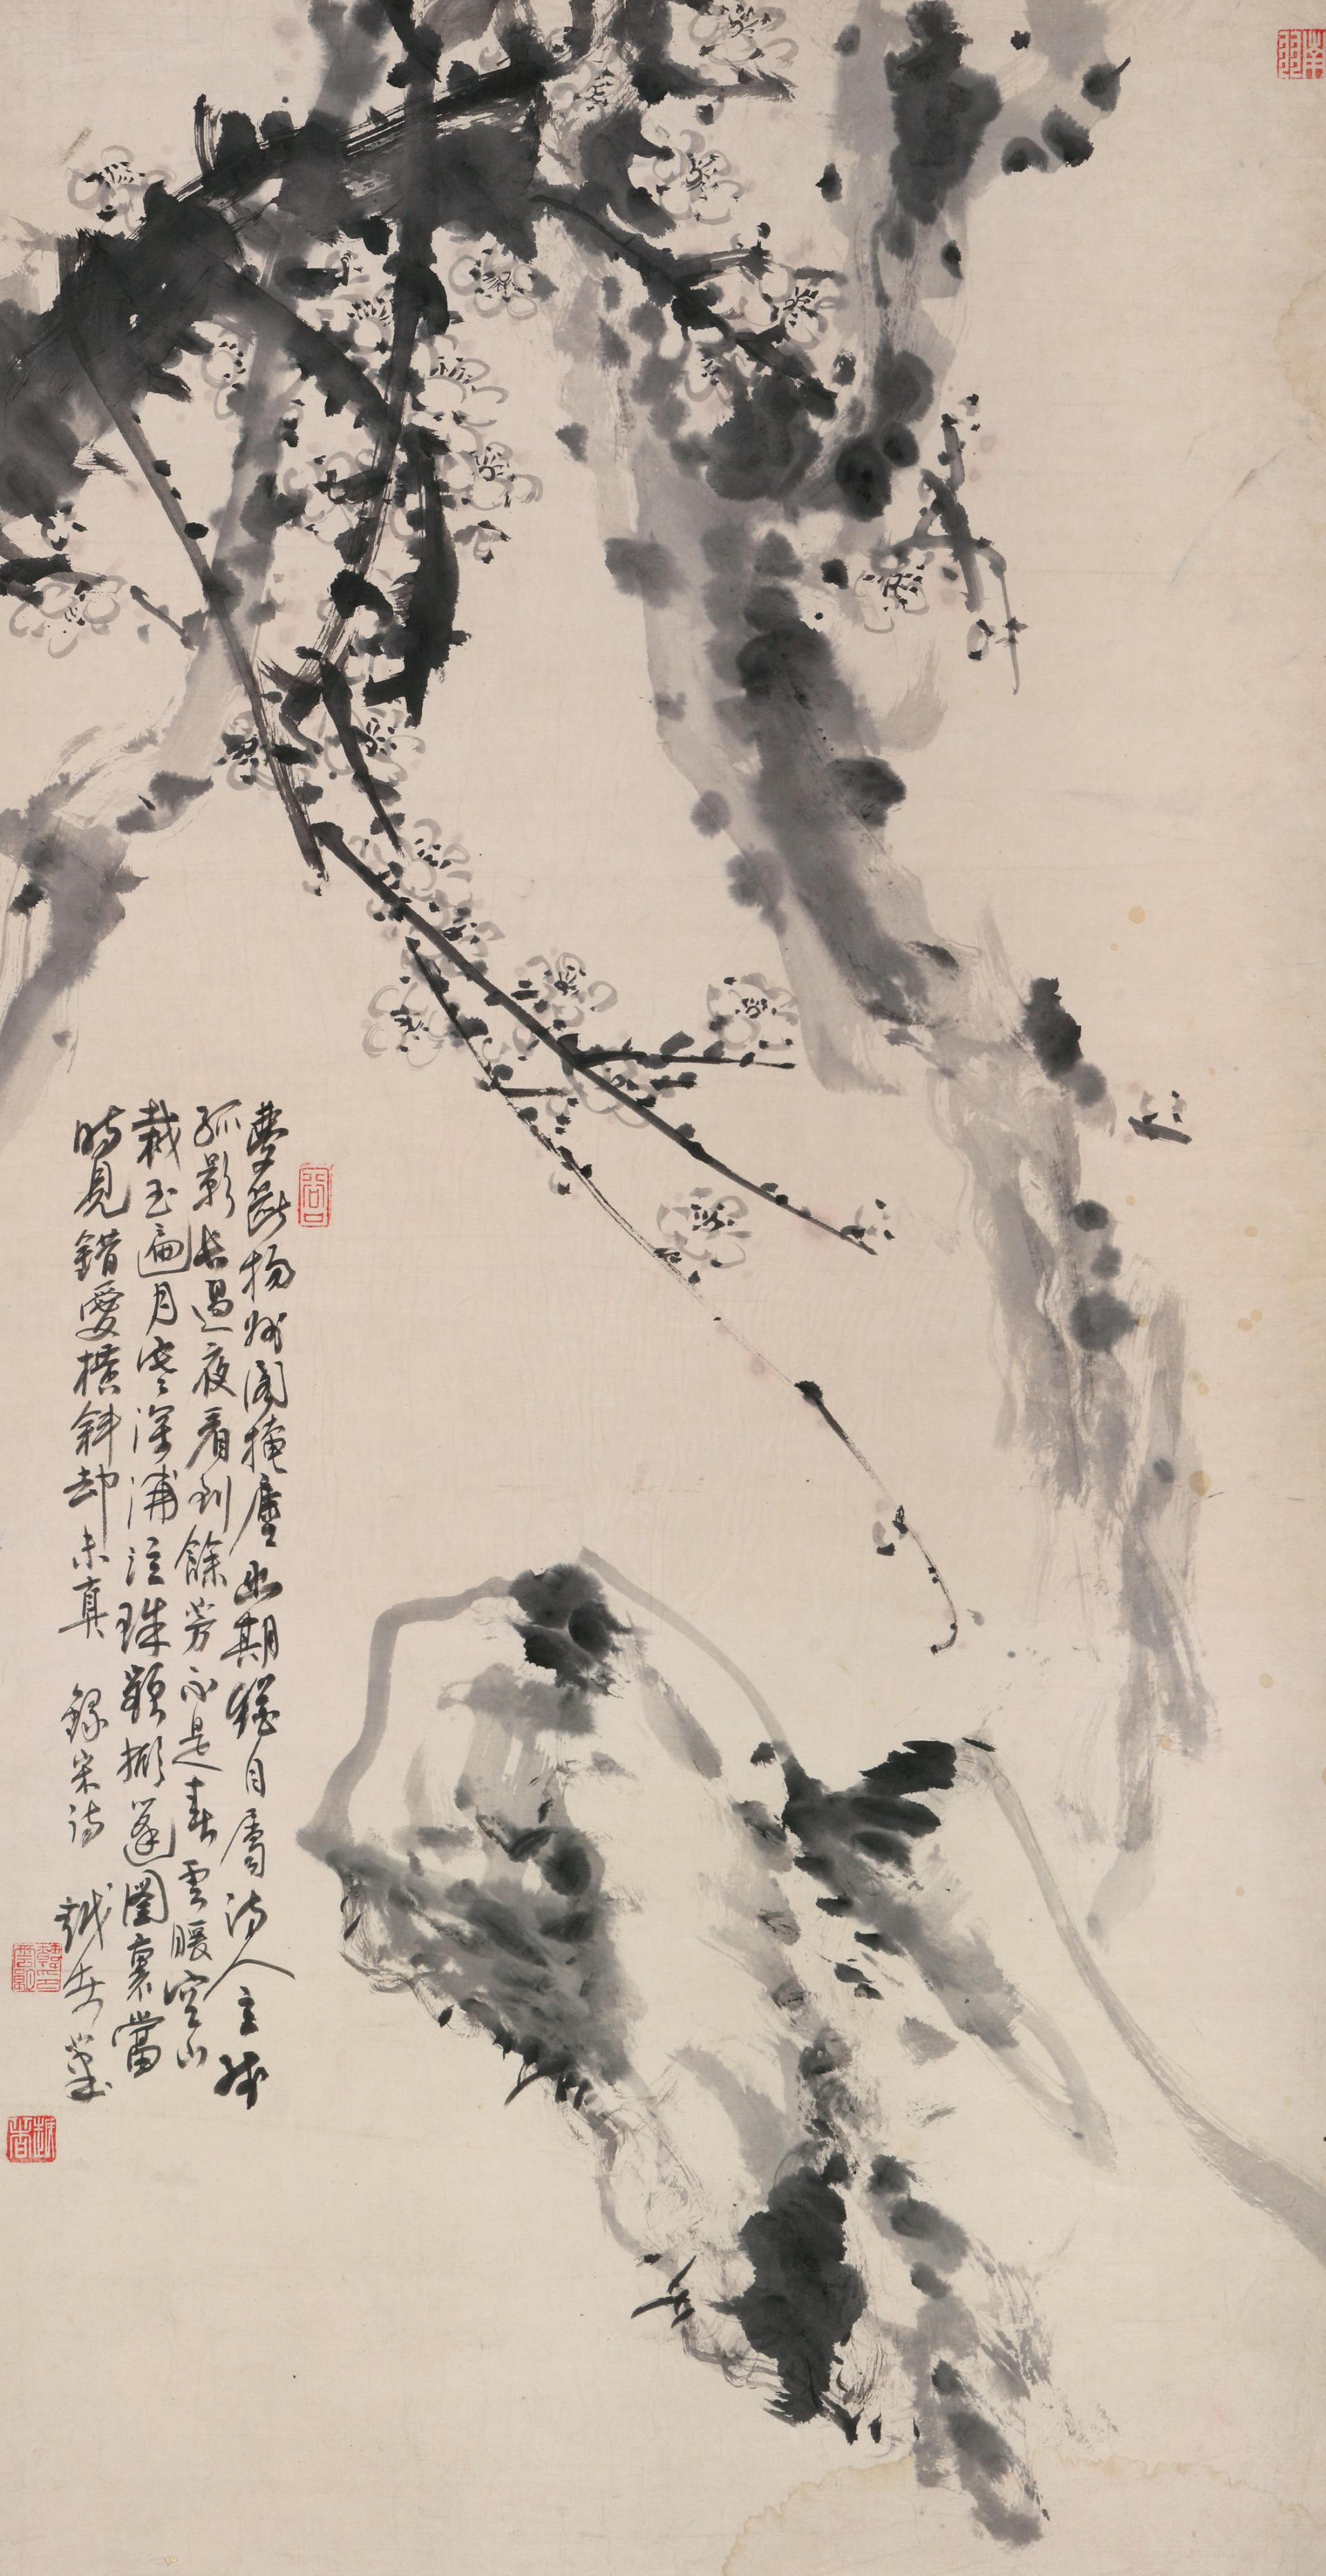 南羽
夢斷揚州閣掩塵幽期猶自屬詩人立殘
孤影長過夜看到餘芳不是春雲暖空山
栽玉遍月寒深浦泣珠頻掀篷圖裏當
時見錯愛橫斜却未真 錄宋詩